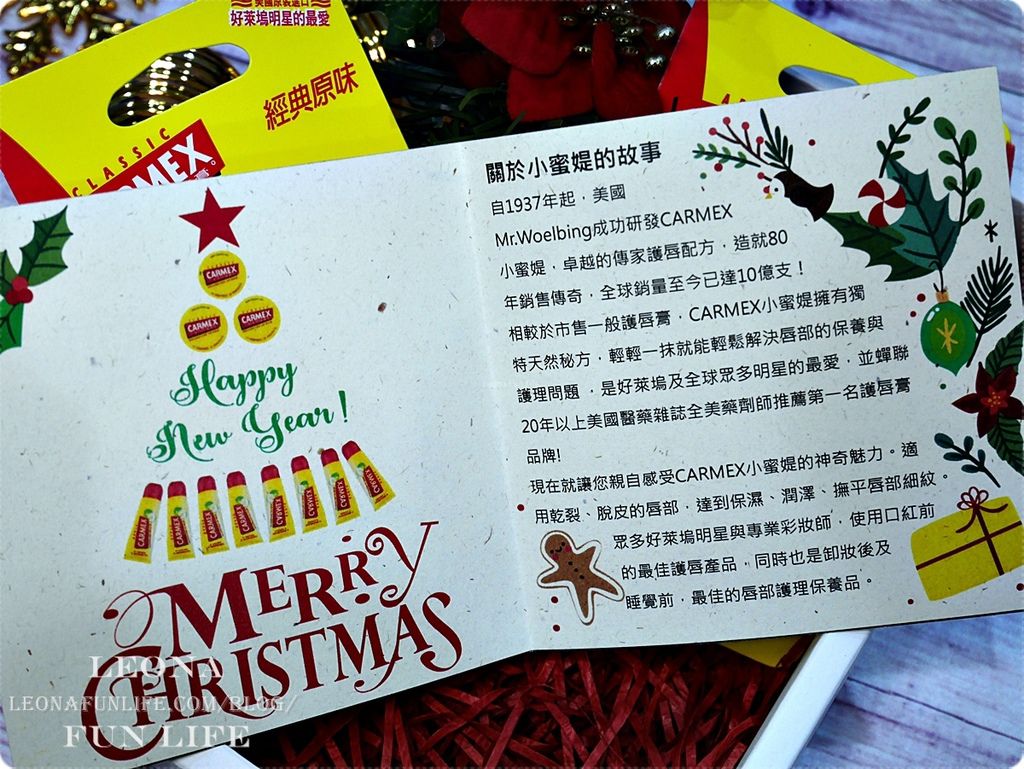 美國原裝進口
好萊塢明星的最愛
經典原味
CLASSIC
CARMEX
CARMEX
CARMEX
Happy
New Year!
CARMEX CARMEX CARMEX CARMEX CARMEX CARMEX CARMEX CARMEX
MERRY
CHRISTMAS
關於小蜜媞的故事
自1937年起，美國
Mr.Woelbing成功研發CARMEX
小蜜媞，卓越的傳家護唇配方，造就80
年銷售傳奇，全球銷量至今已達10億支！
相較於市售一般護唇膏，CARMEX小蜜媞擁有獨
特天然秘方，輕輕一抹就能輕鬆解決唇部的保養與
護理問題，是好萊塢及全球眾多明星的最愛，並蟬聯
20年以上美國醫藥雜誌全美藥劑師推薦第一名護唇膏
品牌!
現在就讓您親自感受CARMEX小蜜媞的神奇魅力。適
用乾裂、脫皮的唇部，達到保濕、潤澤、撫平唇部細紋。
眾多好萊塢明星與專業彩妝師，使用口紅前
的最佳護唇產品，同時也是卸妝後及
睡覺前，最佳的唇部護理保養品。
LEONA
LEONAFUNLIFE.COM/BLOG/
FUN LIFE